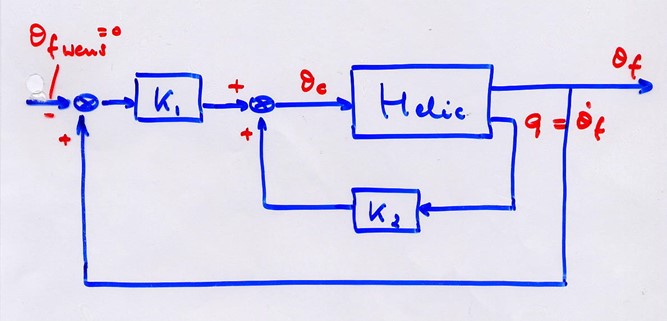 θf wens = 0
-
+
K1
+
+
θc
Helic
θf
q = θ̇f
K2